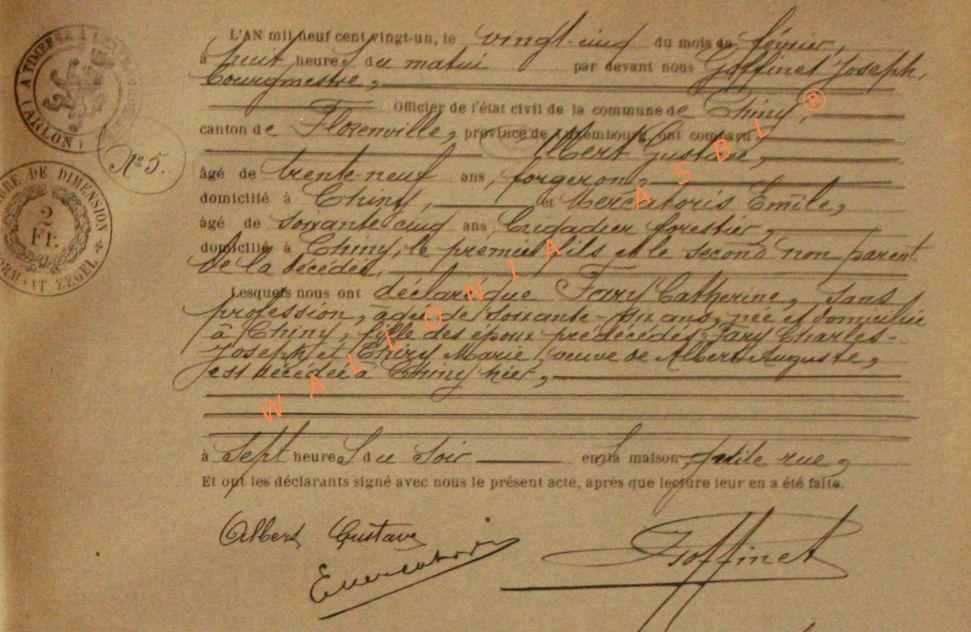 L'AN mil neuf cent vingt-un, le vingt-cinq du mois de février,
à huit heures du matin par devant nous Goffinet Joseph,
bourgmestre,
Officier de l'état civil de la commune de Chiny,
canton de Florenville, province de Luxembourg, ont comparu
Albert Gustave,
âgé de trente-neuf ans, forgeron,
domicilié à Chiny, et Mercatoris Emile,
âgé de soixante-cinq ans brigadier forestier,
domicilié à Chiny, le premier fils et le second non parent
de la décédée,
Lesquels nous ont déclaré que Fary Catherine, sans
profession, agée de soixante-six ans, née et domiciliée
à Chiny, fille des époux prédécédés Fary Charles-
Joseph et Chiry Marie, veuve de Albert Auguste,
est décédée à Chiny hier,
à sept heures du soir en sa maison, petite rue,
Et ont les déclarants signé avec nous le présent acte, après que lecture leur en a été faite.
Albert Gustave
Emercatoris
Goffinet
N° 5.
(ARLON)
DE DIMENSION
2
FR.
ZEGEL
WALLONIA ASBL ®